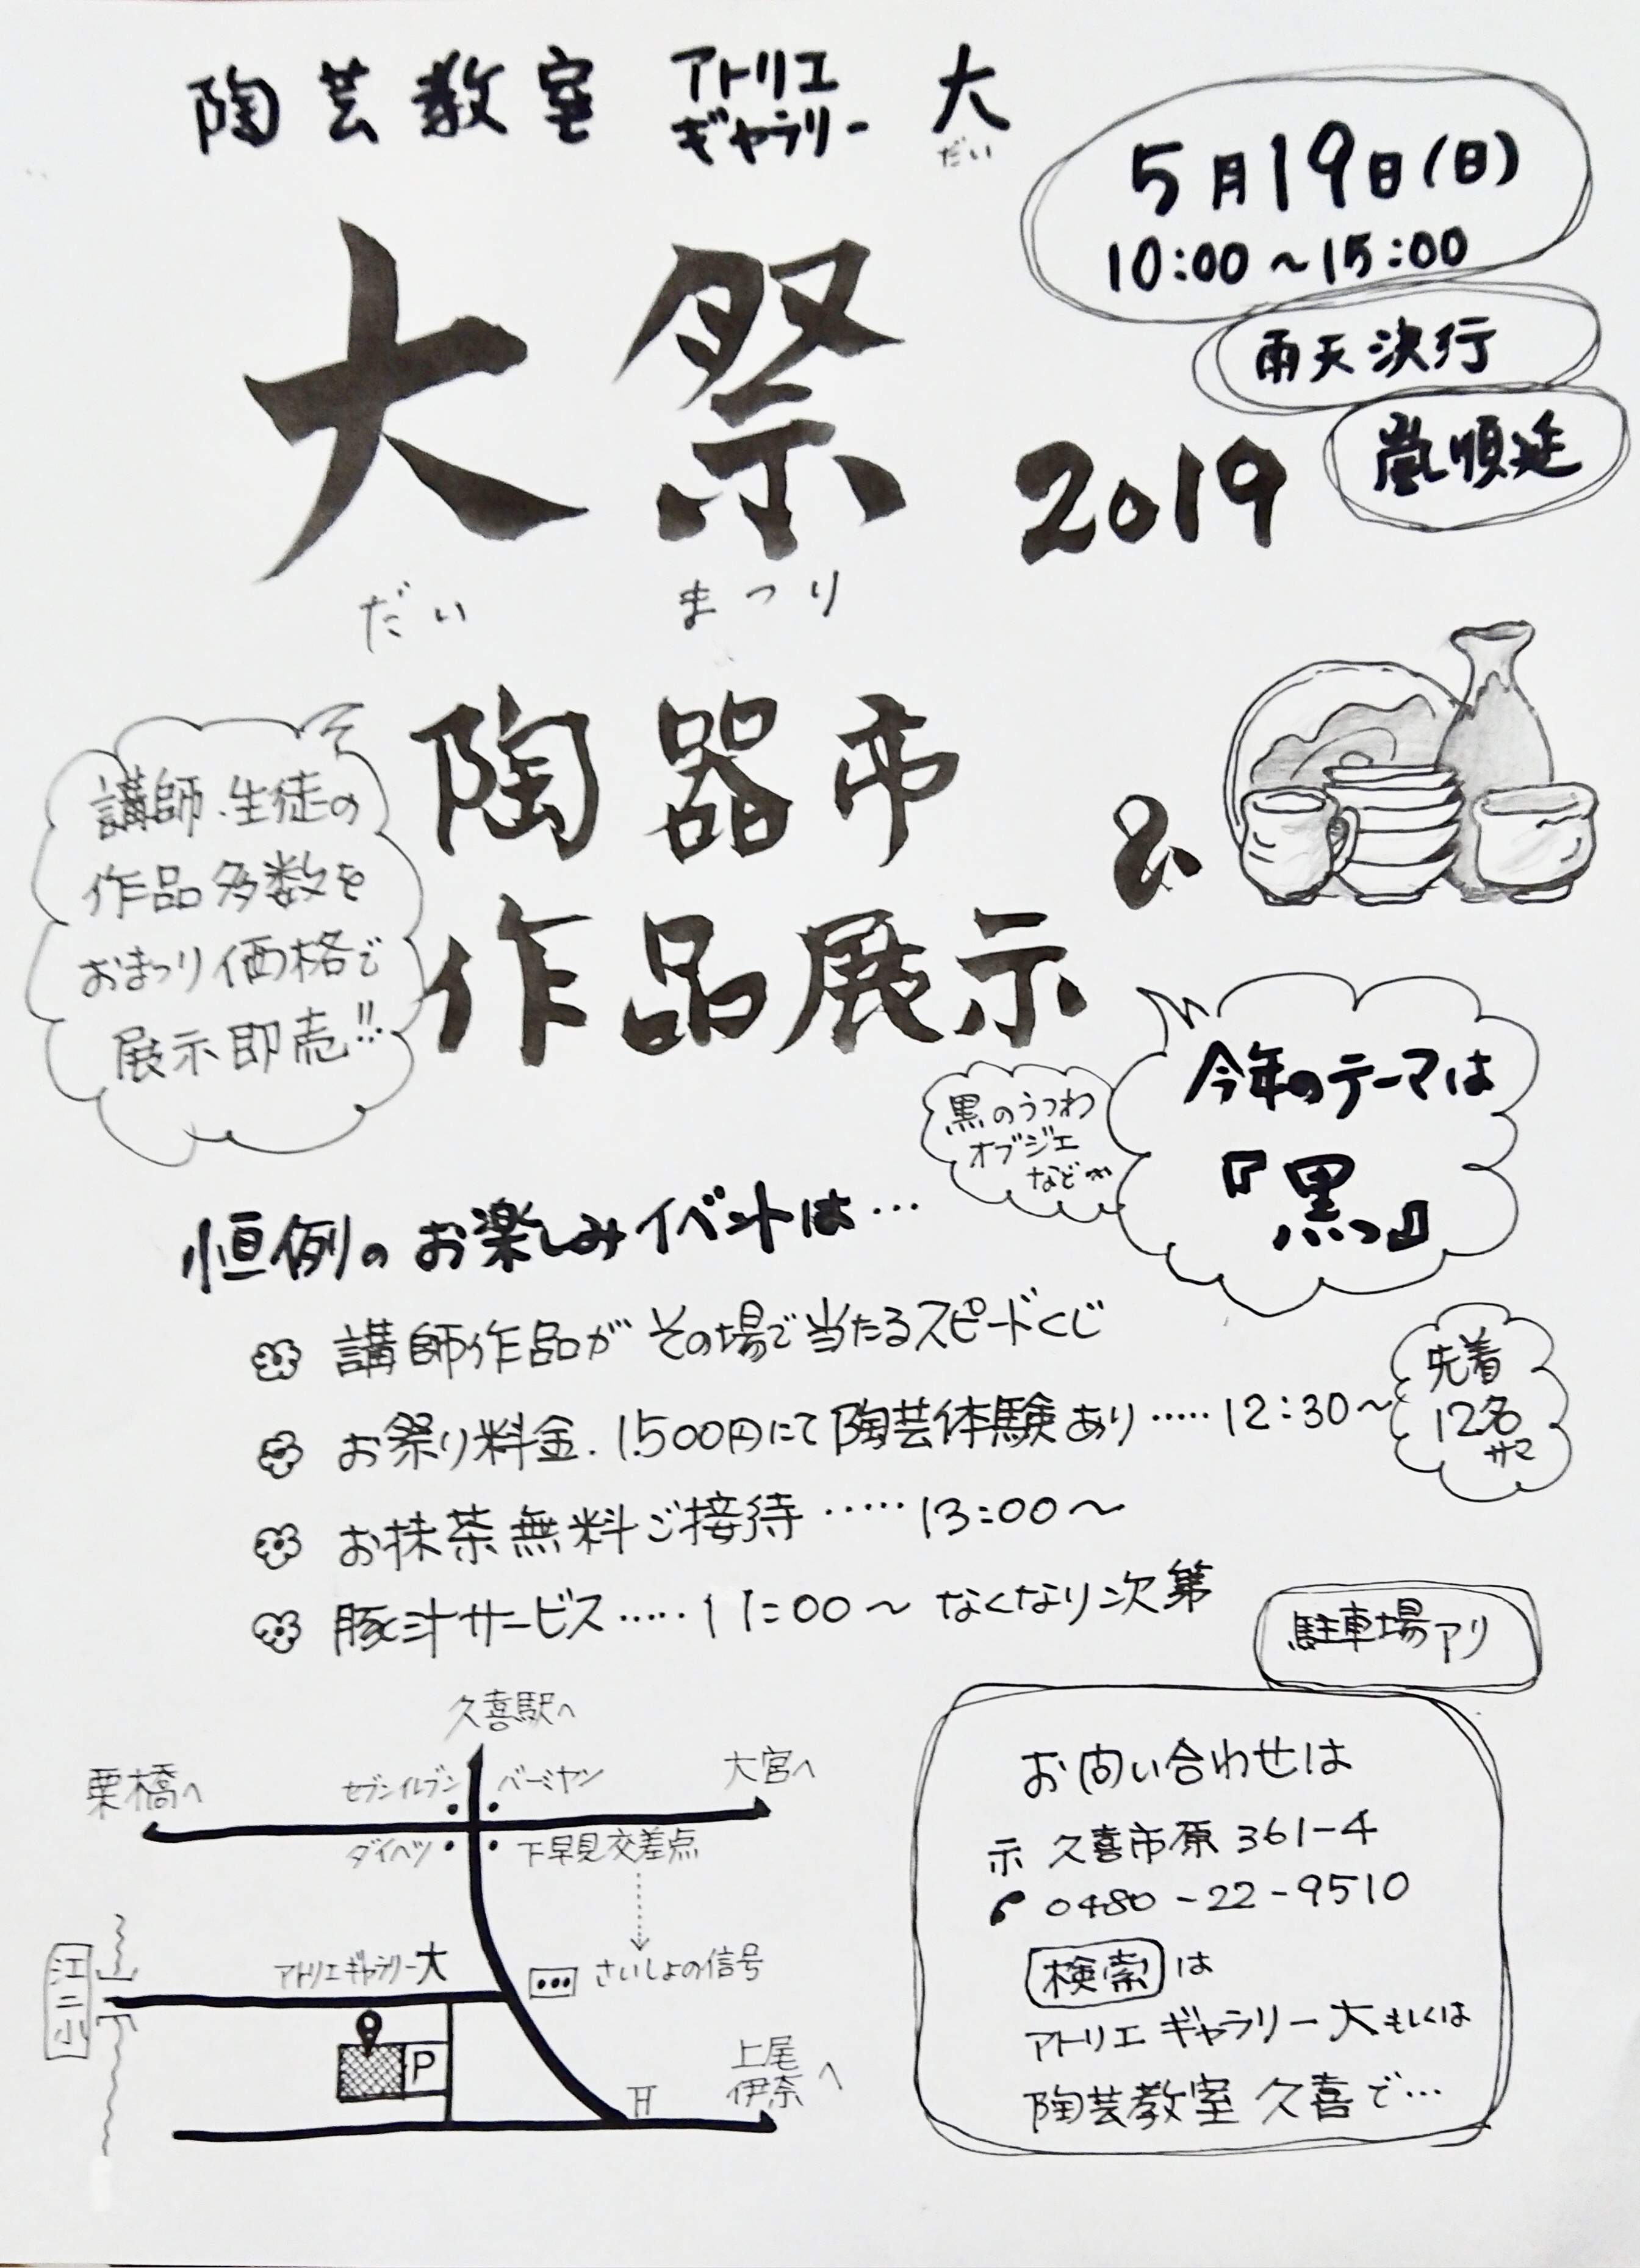 陶芸教室 アトリエ ギャラリー 大
だい
5月19日(日)
10:00～15:00
雨天決行
嵐順延
大祭 2019
だい まつり
陶器市 &
作品展示
講師・生徒の
作品多数を
おまつり価格で
展示即売!!
今年のテーマは
『黒っ』
黒のうつわ
オブジェ
などが
恒例のお楽しみイベントは…
講師作品がその場で当たるスピードくじ
お祭り料金、1,500円にて陶芸体験あり……12:30～
先着
12名
サマ
お抹茶無料ご接待……13:00～
豚汁サービス……11:00～なくなり次第
駐車場アリ
久喜駅へ
栗橋へ
セブンイレブン
バーミヤン
大宮へ
ダイハツ
下早見交差点
アトリエギャラリー大
さいしょの信号
江二小
P
上尾
伊奈へ
お問い合わせは
久喜市原361-4
0480-22-9510
検索は
アトリエギャラリー大もしくは
陶芸教室 久喜で…